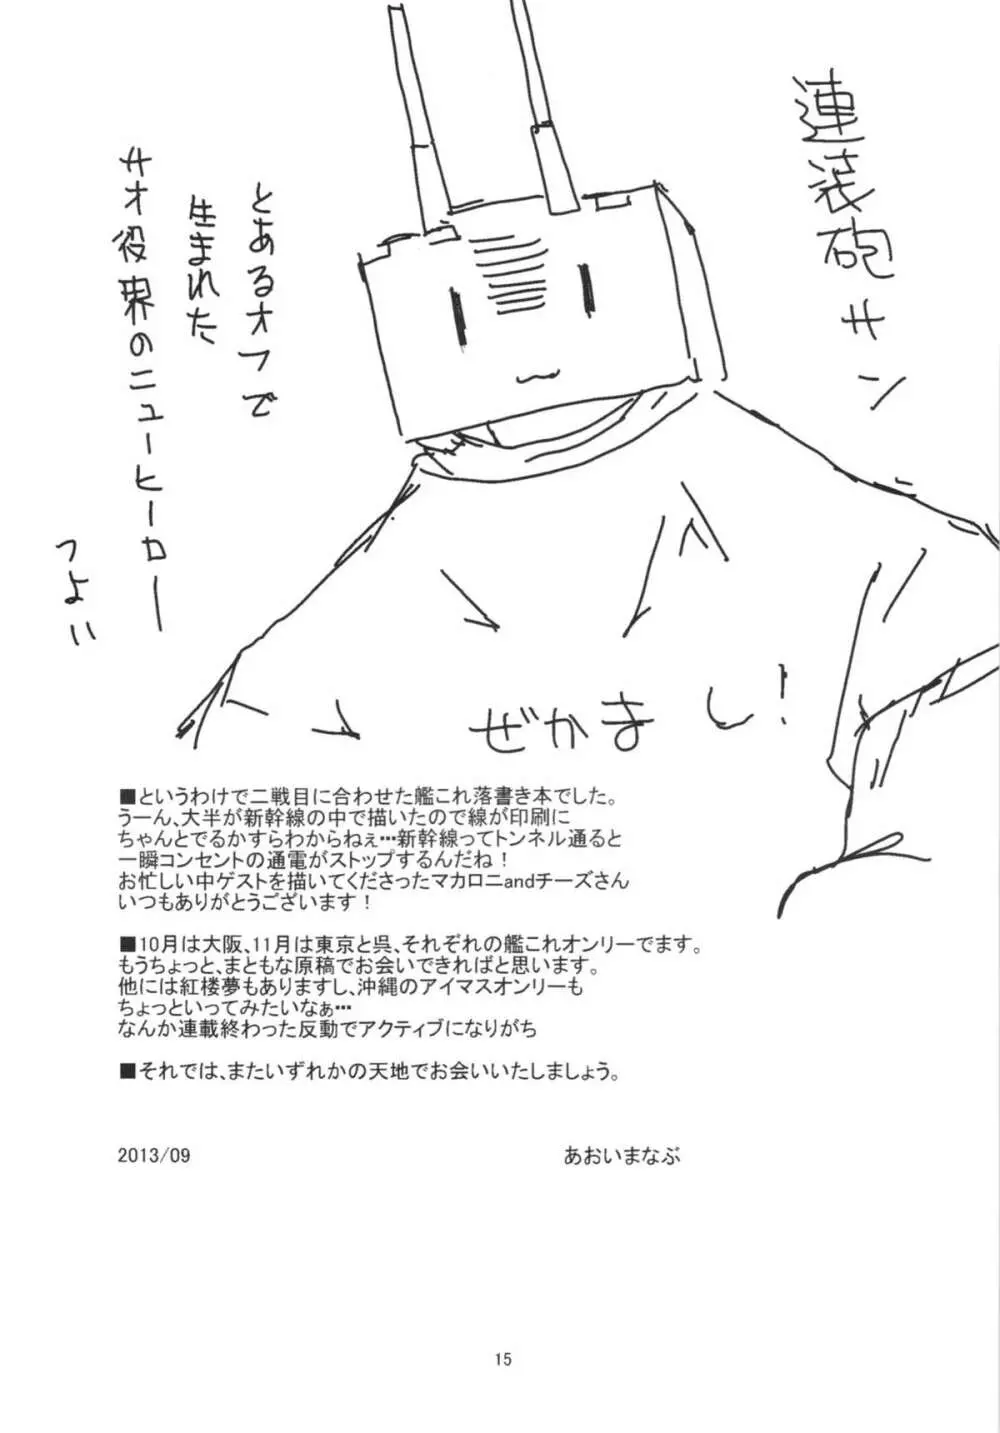 連装砲サン
とあるオフで
生まれた
サオ役界のニューヒーロー
つよい
ぜかまし!
■というわけで二戦目に合わせた艦これ落書き本でした。
うーん、大半が新幹線の中で描いたので線が印刷に
ちゃんとでるかすらわからねぇ…新幹線ってトンネル通ると
一瞬コンセントの通電がストップするんだね!
お忙しい中ゲストを描いてくださったマカロニandチーズさん
いつもありがとうございます!
■10月は大阪、11月は東京と呉、それぞれの艦これオンリーでます。
もうちょっと、まともな原稿でお会いできればと思います。
他には紅楼夢もありますし、沖縄のアイマスオンリーも
ちょっといってみたいなぁ…
なんか連載終わった反動でアクティブになりがち
■それでは、またいずれかの天地でお会いいたしましょう。
2013/09
あおいまなぶ
15